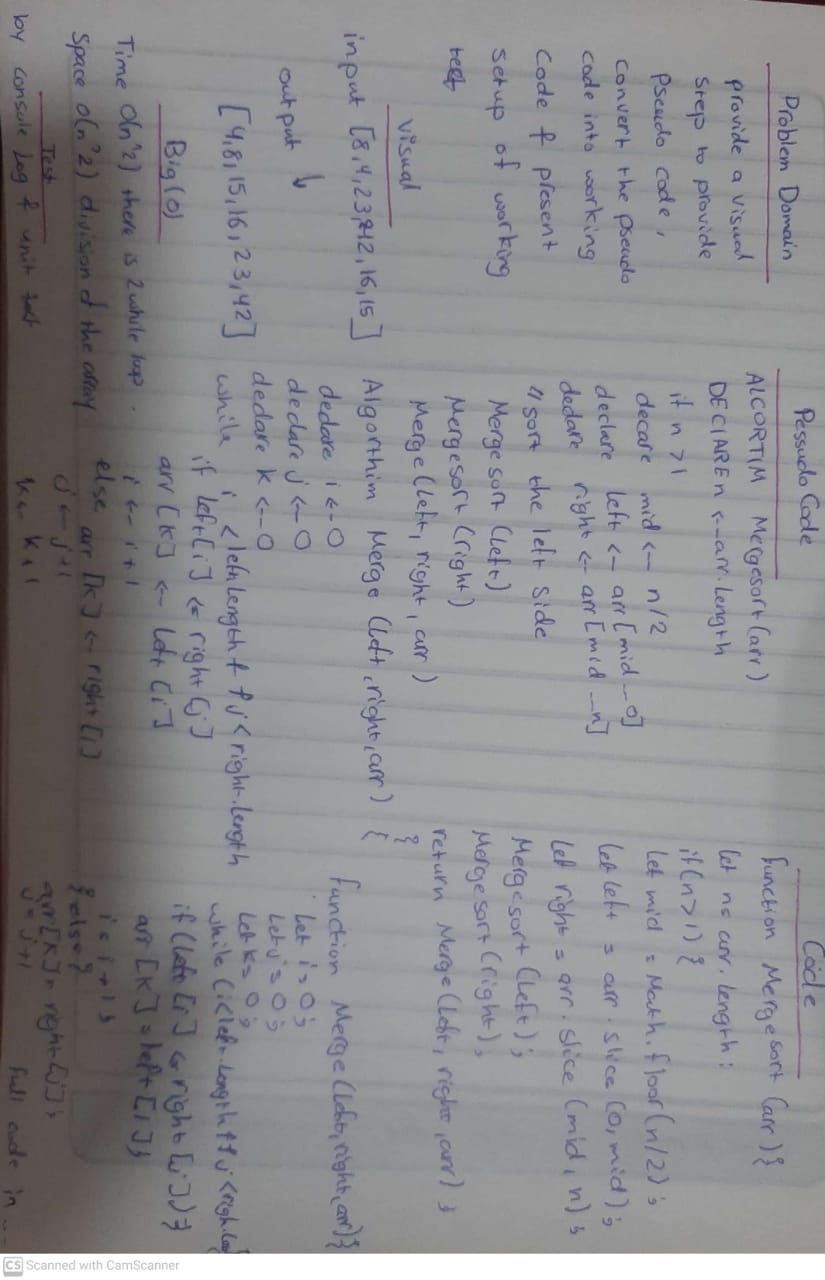 Problem Domain
provide a visual
step to provide
pseudo code,
convert the pseudo
code into working
Code & present
setup of working
test
Visual
input [8,4,23,42,16,15]
output ↓
[4,8,15,16,23,42]
Big(O)
Time O(n^2) there is 2 while loop.
Space O(n^2) division of the array
Test
by console log & unit test
Pessudo Code
ALCORTIM Mergesort(arr)
DECIARE n <-- arr.length
if n >1
decare mid <-- n/2
declare left <-- arr[mid --0]
dedare right <-- arr[mid --n]
// sort the left side
Merge sort (left)
Mergesort (right)
Merge(left, right, arr)
Algorthim Merge (left, right, arr)
dedare i <--0
declare j <--0
declare k <--0
while i < left.length && j < right.length
if left[i] <= right[j]
arr[k] <- left[i]
i <-- i+1
else arr [k] <- right[j]
j <- j+1
k <- k+1
Code
function Mergesort (arr){
let n= arr.length;
if(n>1){
let mid = Math.floor(n/2);
let left = arr.slice(0,mid);
let right = arr.slice(mid,n);
Mergesort(left);
Mergesort(right);
return Merge(left, right, arr);
}
}
function Merge(left,right,arr){
let i=0;
let j=0;
let k=0;
while (i<left.length && j<right.
if(left[i] <= right[j]){
arr[k] = left[i];
i = i+1;
} else {
arr[k]= right[j];
j = j+1
full code in
CS Scanned with CamScanner